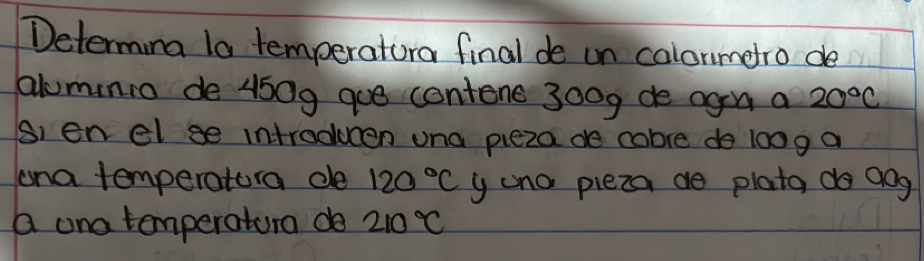 Determina la temperatura final de un calorimetro de
aluminio de 450g que contene 300g de agua a 20°C
Si en el se introducen una pieza de cobre de 100g a
una temperatura de 120°C y una pieza de plata de 90g
a una temperatura de 210°C